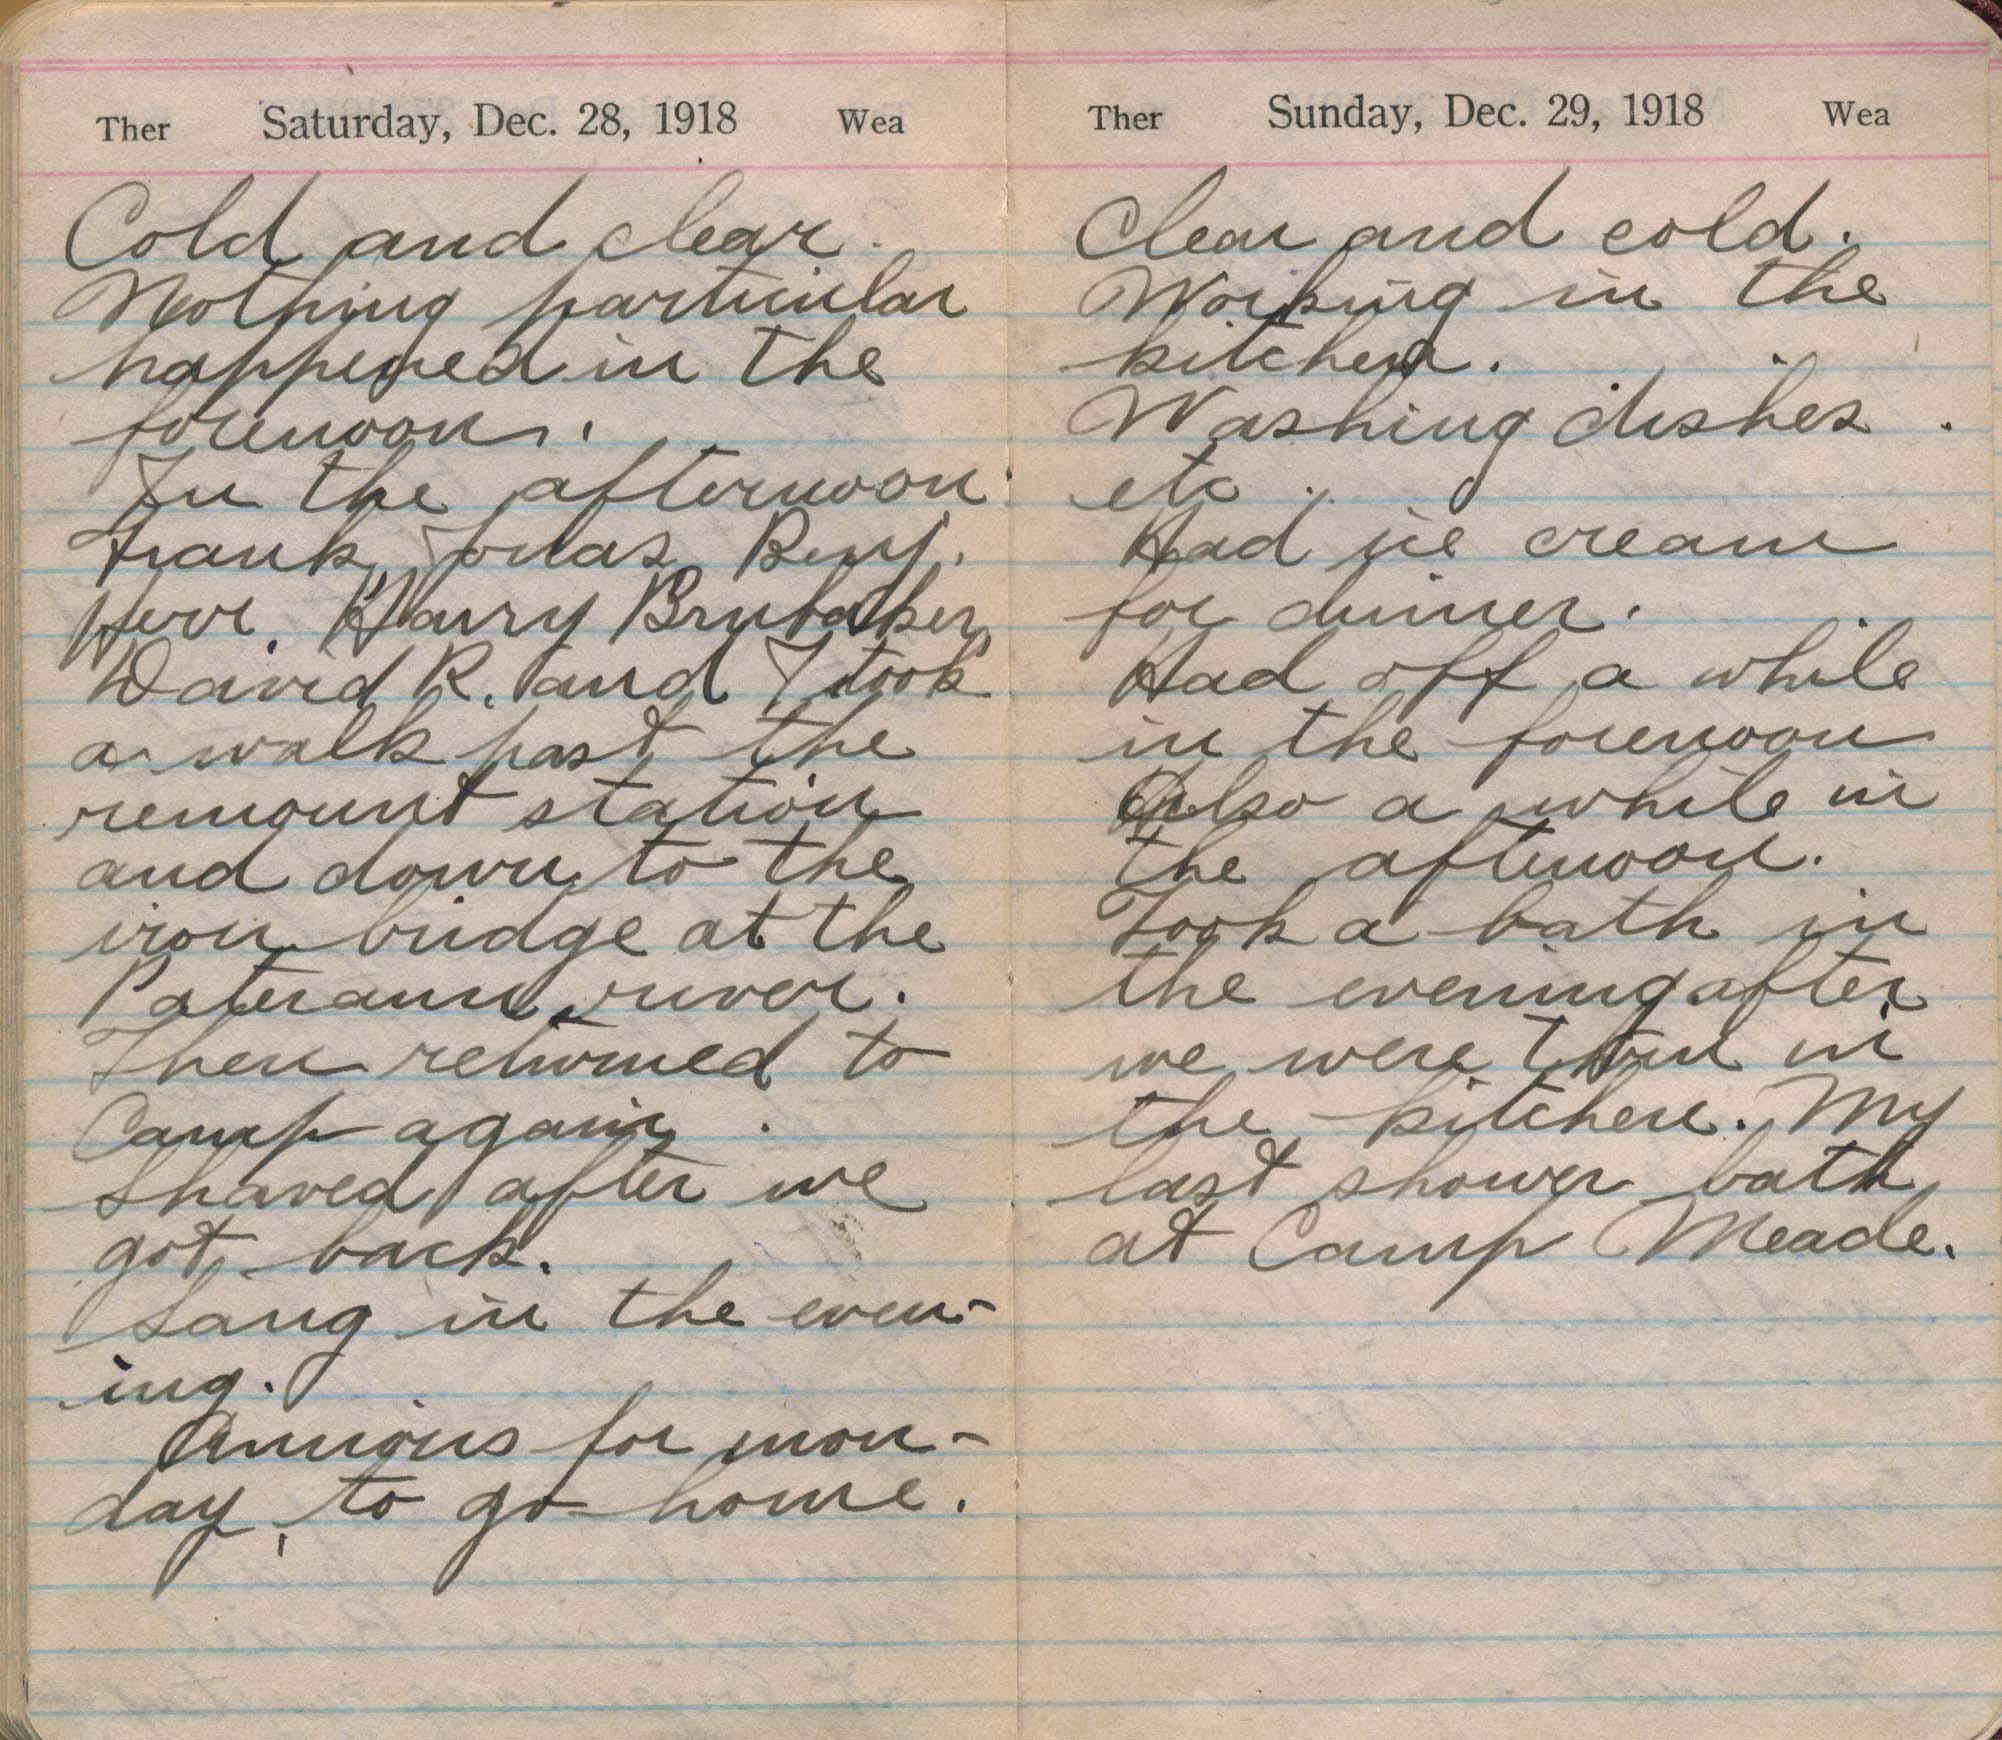 Ther Saturday, Dec. 28, 1918 Wea
Cold and clear.
Nothing particular
happened in the
forenoon.
In the afternoon
Frank, Jonas, Benj.
Herr, Harry Brubaker,
David R. and I took
a walk past the
remount station
and down to the
iron bridge at the
river.
Then returned to
Camp again.
Shaved after we
got back.
Sang in the even-
ing.
Anxious for mon-
day, to go home.
Ther Sunday, Dec. 29, 1918 Wea
Clear and cold.
Working in the
kitchen.
Washing dishes.
etc.
Had ice cream
for dinner.
Had off a while
in the forenoon
Also a while in
the afternoon.
Took a bath in
the evening after
we were in
the kitchen. My
last shower bath
at Camp Meade.